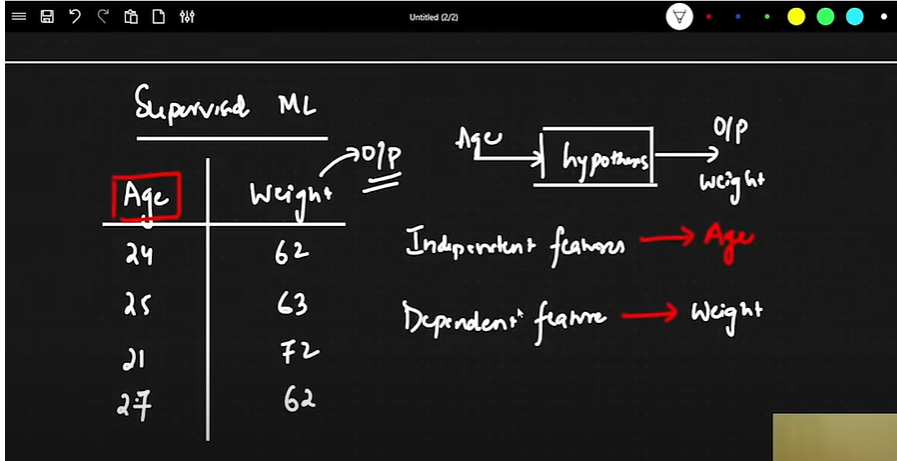 Untitled (2/2)
Supervised ML
Age | Weight → O/P
24 | 62
25 | 63
21 | 72
27 | 62
Age → hypothesis → O/P
Weight
Independent features → Age
Dependent feature → Weight